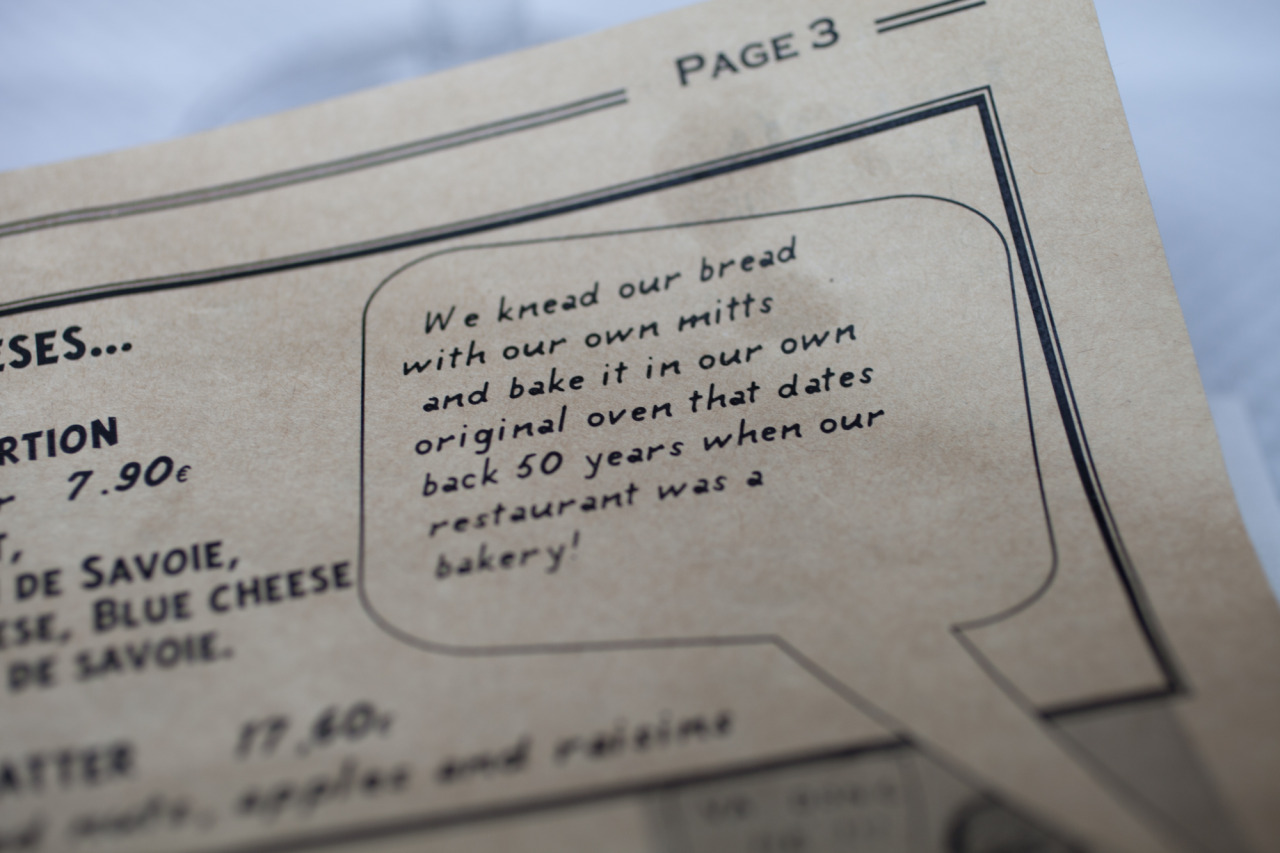 PAGE 3
ESES...
RTION
7.90€
DE SAVOIE,
ESE, BLUE CHEESE
DE SAVOIE.
ATTER 17.60€
nuts, apples and raisins
We knead our bread
with our own mitts
and bake it in our own
original oven that dates
back 50 years when our
restaurant was a
bakery!